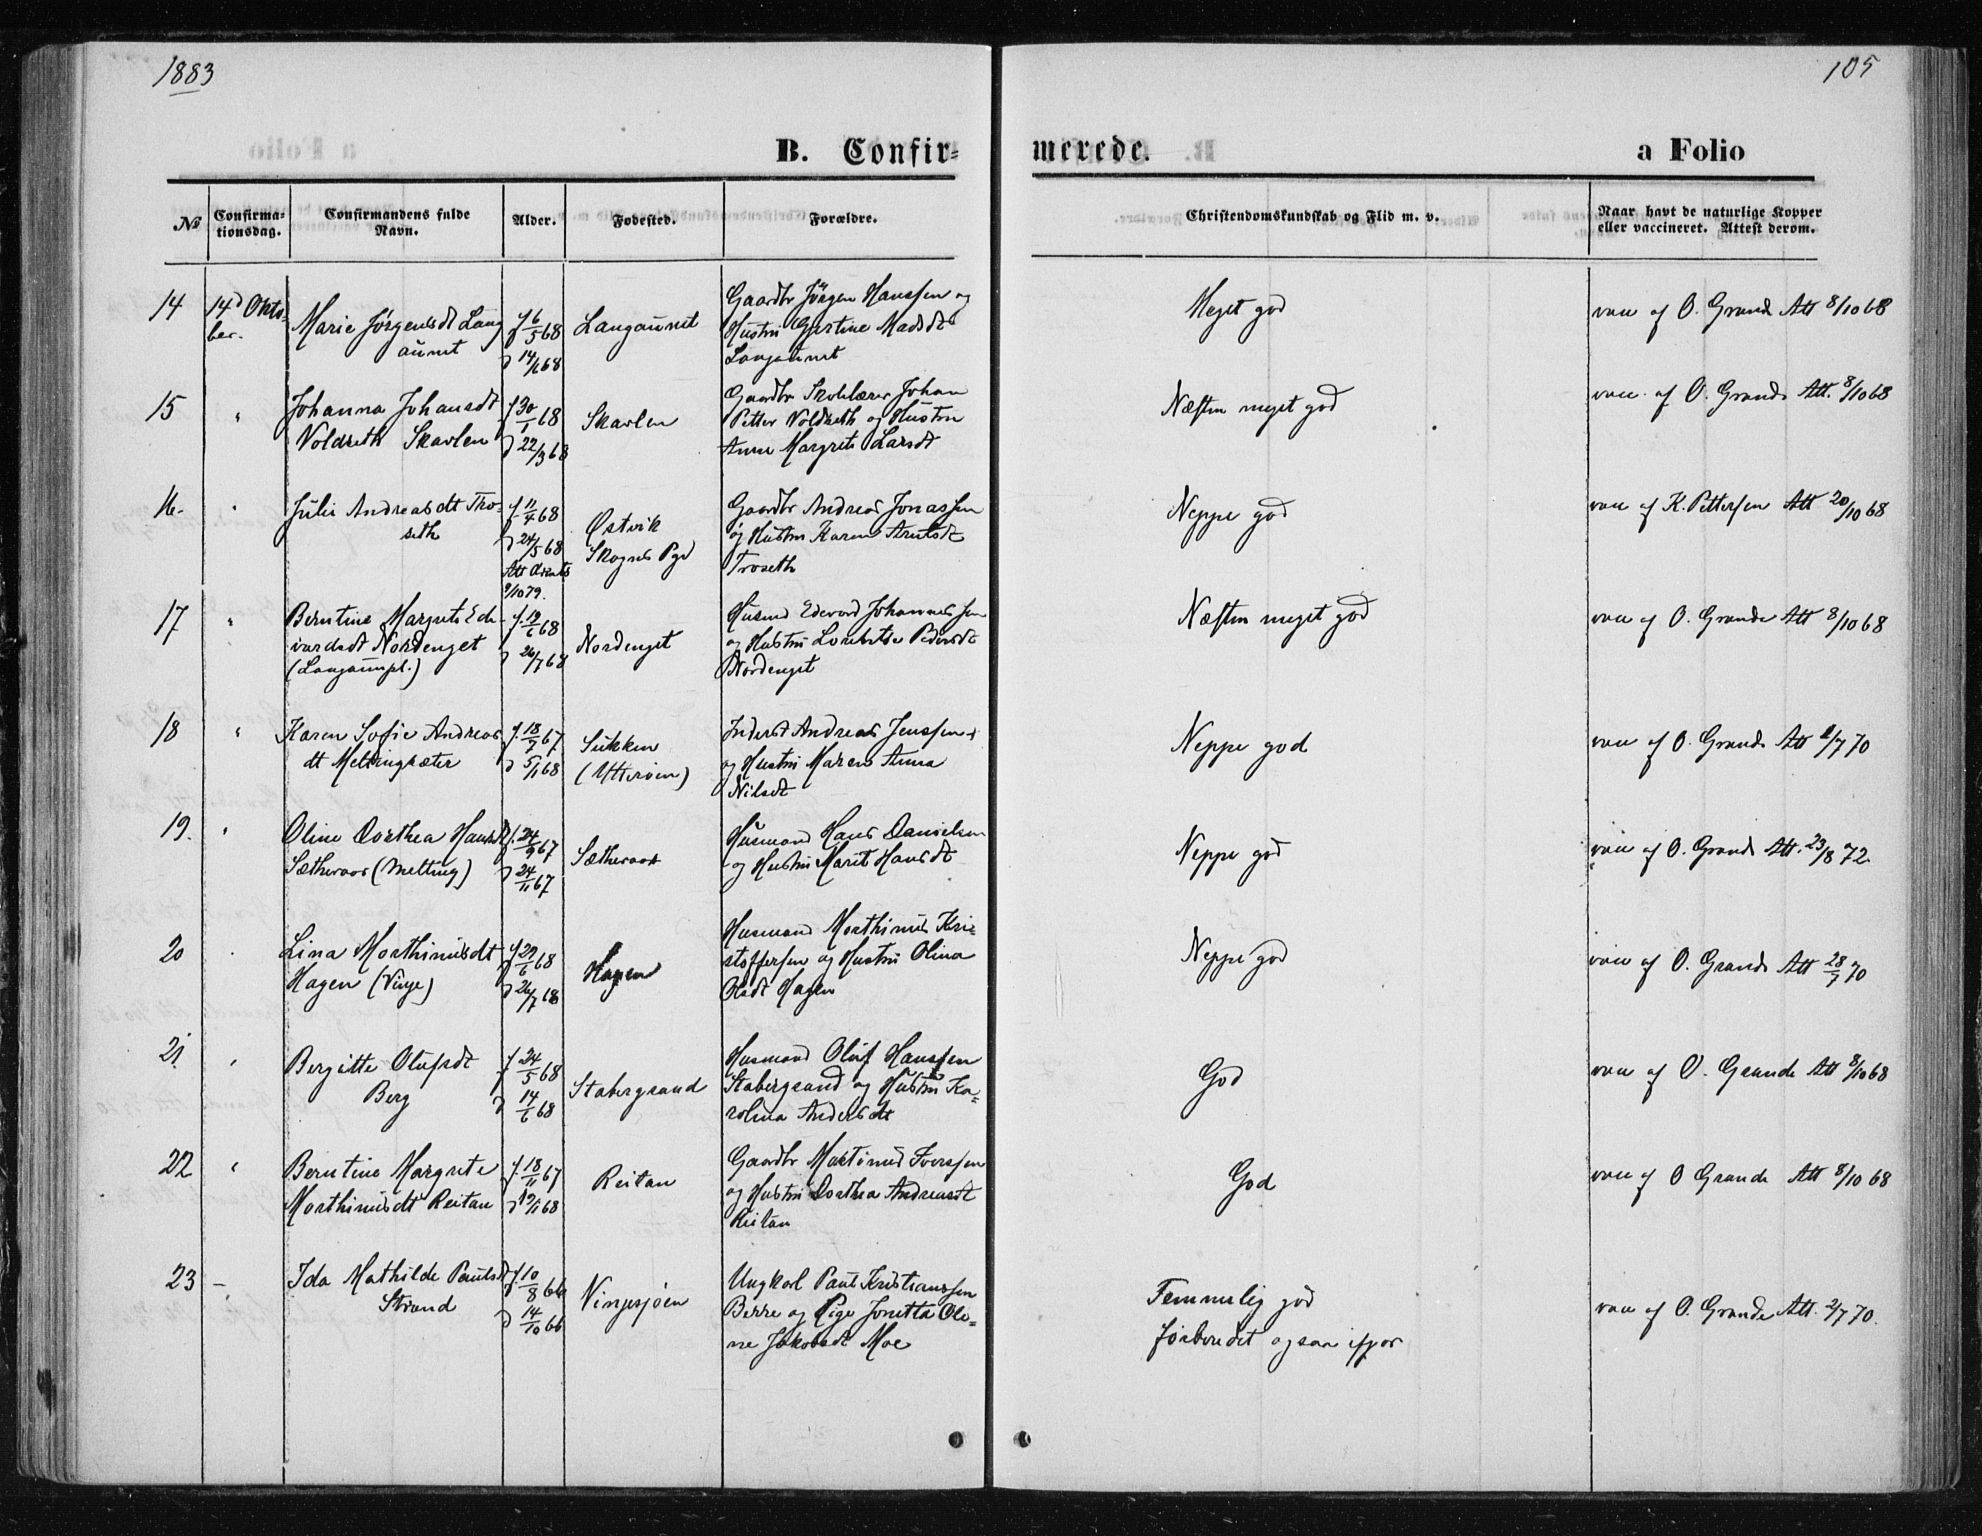 1883
105
B. Confir-
merede.
a Folio
No
Confirma-
tionsdag.
Confirmandens fulde
Navn.
Alder.
Fødested.
Forældre.
Christendomskundskab og Flid m. v.
Naar havt de naturlige Kopper
eller vaccineret. Attest derom.
14
14d Okto-
ber.
Marie Jørgensdt Lang
aunet
f 6/5 68
d 14/6 68
Langaunet
Gaardbr Jørgen Hanssen og
Hustru Gjertine Madsdt
Langaunet
Meget god
vac af O. Grande Att 8/10 68
15
"
Johanna Johansdt
Voldseth Skavlen
f 30/1 68
d 22/3 68
Skavlen
Gaardbr Skolelærer Johan
Petter Voldseth og Hustru
Anne Margrete Larsdt
Næsten meget god
vac. af O. Grande Att. 8/10 68
16.
"
Julie Andreasdt Tro-
seth
f 11/4 68
d 24/5 68
Att
9/10 79.
Østvik
Skogns Pgd
Gaardbr Andreas Jonassen
og Hustru Karen Arntsdt
Troseth
Neppe god
vac af K. Pettersen Att 20/10 68
17
"
Berntine Margrete Ed-
vardsdt Nordenget
(Langaunpl.)
f. 19/6 68
d 26/7 68
Nordenget
Husmd Edevard Johannessen
og Hustru Lorentse Pedersdt
Nordenget
Næsten meget god
vac af O. Grande Att 8/10 68
18
"
Karen Sofie Andreas
dt Meltingsæter
f. 18/7 67
d 5/1 68
Sukken
(Ytterøen)
Inderst Andreas Jenssen
og Hustru Maren Anna
Nilsdt
Neppe god
vac af O. Grande Att 2/7 70
19.
"
Oline Dorthea Hansdt
Sætheraas (Melting)
f. 24/9 67
d 24/11 67
Sætheraas
Husmand Hans Danielsen
og Hustru Marit Hansdt
Neppe god
vac af O. Grande Att. 23/8 72.
20
"
Lina Morthinusdt
Hagen (Vinje)
f 29/6 68
d 26/7 68
Hagen
Husmand Morthinus Kri-
stoffersen og Hustru Olina
Olsdt Hagen
Neppe god
vac af O. Grande Att 28/7 70
21.
"
Bergitte Olufsdt
Berg
f 24/5 68
d 14/6 68
Stabergsand
Husmand Oluf Hanssen
Stabergsand og Hustru Ka-
rolina Andersdt
God
vac af O. Grande Att 8/10 68
22
"
Berntine Margrete
Morthinusdt Reitan
f. 18/11 67
d 19/1 68
Reitan
Gaardbr Martinus Iverssen
og Hustru Dorthea Andreasdt
Reitan
God
vac af O Grande Att 8/10 68
23
–
Ida Mathilde Paulsdt
Strand
f. 10/8 66
d 14/10 66
Vinjesjøen
Ungkarl Paul Kristianssen
Berre og Pige Jonetta Ole-
ne Jakobsdt Moe
Temmelig god
forberedet ogsaa ifjor
vac af O. Grande Att. 2/7 70.